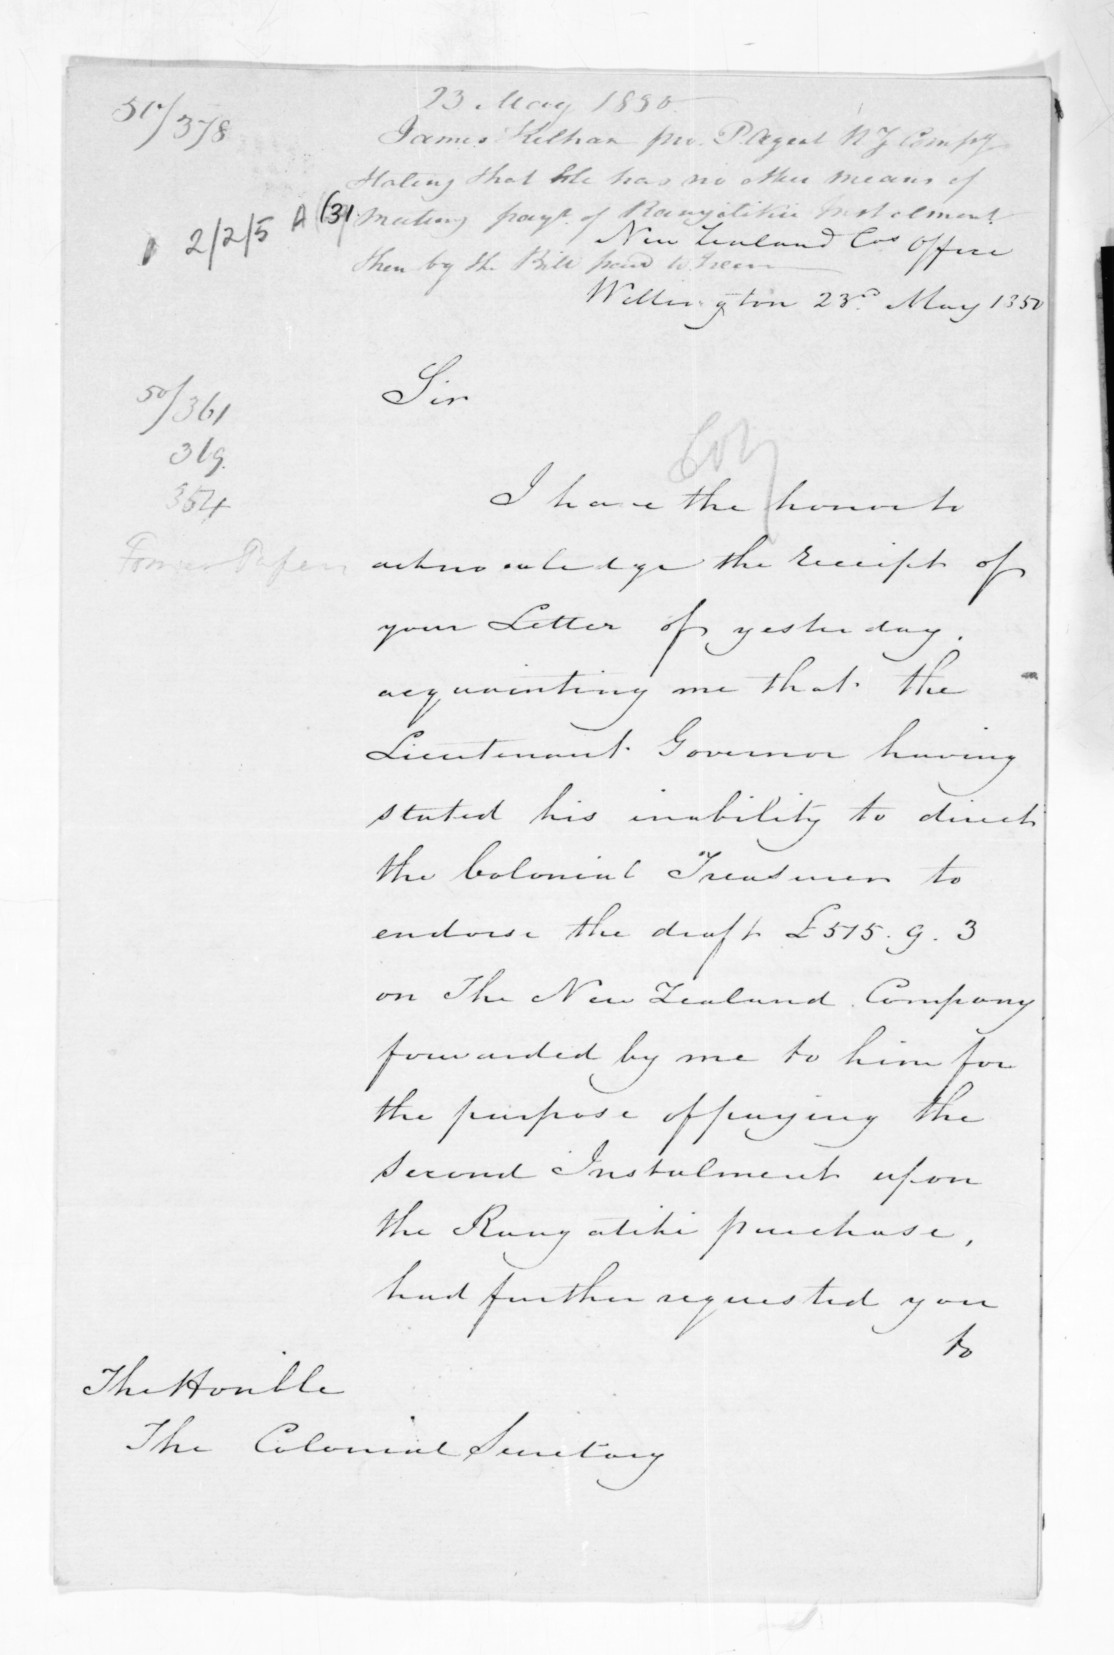 50/378
23 May 1850
James Kelham pro. P. Agent N Z Compy
Stating that he has no other means of
meeting payt. of Rangitikei Instalment
then by the Bill
2/2/5 A (3)
New Zealand Cos Office
Wellington 23rd May 1850
50/361
319.
354
Former Papers
Sir
Coy
I have the honor to
acknowledge the receipt of
your Letter of yesterday.
acquainting me that the
Lieutenant Governor having
stated his inability to direct
the Colonial Treasurer to
endorse the draft £515. 9. 3
on The New Zealand Company
forwarded by me to him for
the purpose of paying the
second Instalment upon
the Rangatiki purchase,
had further requested you
to
The Honble
The Colonial Secretary